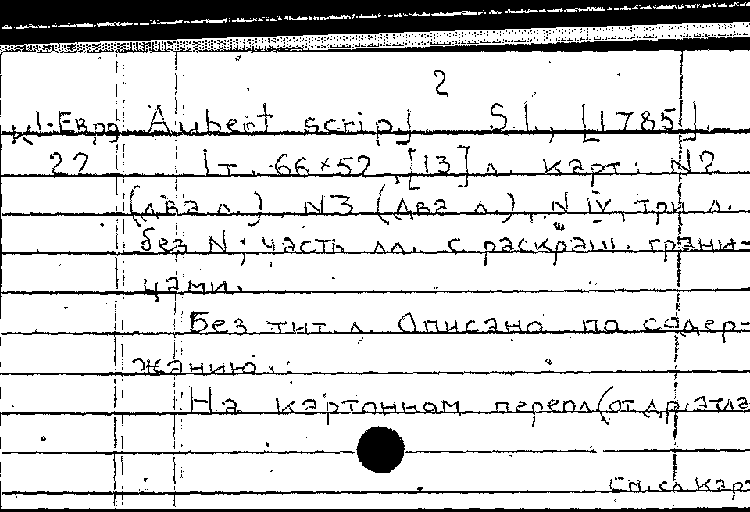 2
К1-Евро Aubert scrip.] S.l., [1785].
22 1т. 66×52, [13] л. карт: N2
(два л.), N3 (два л.), N IV, три л.
без N; часть лл. с раскраш. грани-
цами.
Без тит. л. Описано по содер-
жанию.
На картонном перепл(от др. атла
См. сл. карт